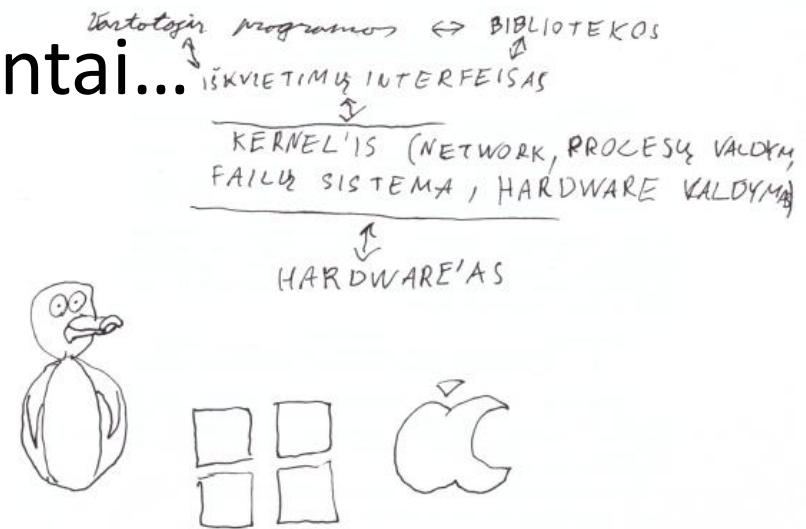 Vartotojų programos ↔ BIBLIOTEKOS
ntai...
IŠKVIETIMŲ INTERFEISAS
KERNEL'IS (NETWORK, PROCESŲ VALDYM,
FAILŲ SISTEMA, HARDWARE VALDYMAS)
HARDWARE'AS